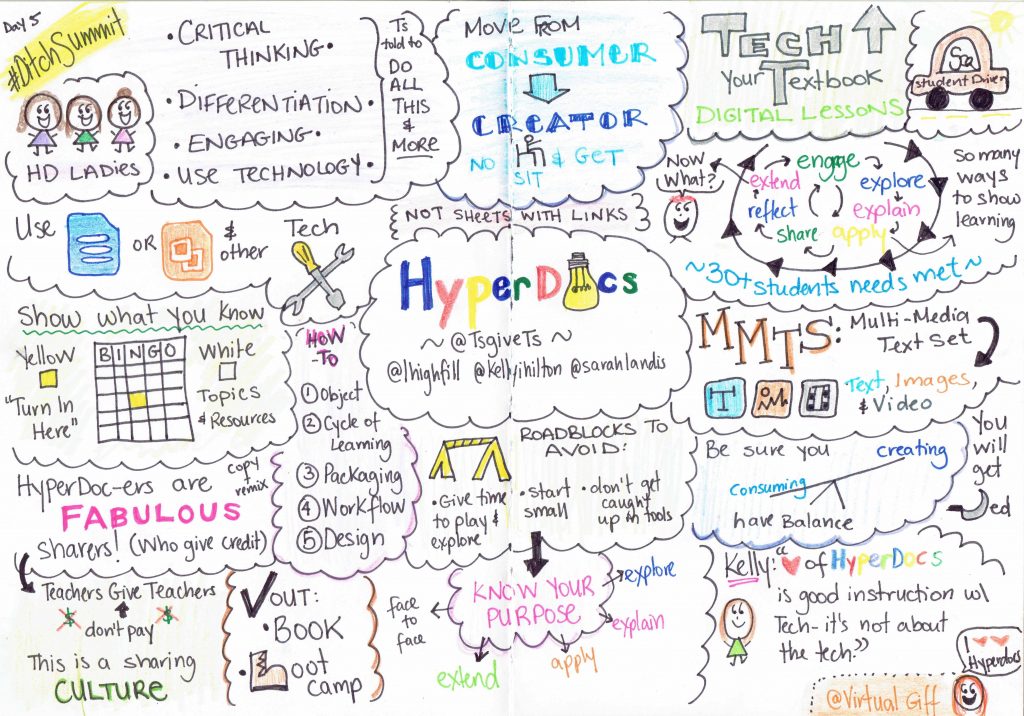 Day 5
#DitchSummit
HD LADIES
• CRITICAL
THINKING •
• DIFFERENTIATION •
• ENGAGING •
• USE TECHNOLOGY •
Ts
told to
DO
ALL
THIS
&
MORE
MOVE FROM
CONSUMER
CREATOR
NO
SIT
& GET
TECH
Your Textbook
DIGITAL LESSONS
student Driven
Use
OR
&
other
Tech
NOT SHEETS WITH LINKS
HyperDocs
~ @TsgiveTs ~
@lhighfill @kellyihilton @sarahlandis
Now
What?
engage
explore
explain
apply
share
reflect
extend
So many
ways
to show
learning
~30+ students needs met~
Show what you know
Yellow
"Turn In
Here"
BINGO
White
Topics
& Resources
HOW
-TO
① Object
② Cycle of
Learning
③ Packaging
④ Workflow
⑤ Design
MMTS: Multi-Media
Text Set
T
Text, Images,
& Video
HyperDoc-ers are
copy +
remix
FABULOUS
sharers! (Who give credit)
• Give time
to play &
explore
ROADBLOCKS TO
AVOID:
• start
small
• don't get
caught
up in tools
Be sure you
creating
consuming
have Balance
You
will
get
ed
Teachers Give Teachers
$ don't pay $
This is a sharing
CULTURE
OUT:
• BOOK
• oot
camp
KNOW YOUR
PURPOSE
face
to
face
extend
apply
explain
explore
Kelly: "♥ of HyperDocs
is good instruction w/
Tech- it's not about
the tech."
I ♥♥
Hyperdocs
@Virtual Giff